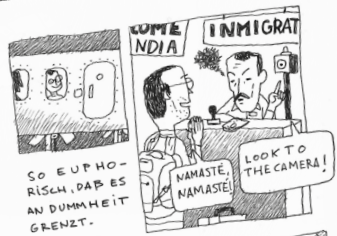 SO EUPHO-
RISCH, DAß ES
AN DUMMHEIT
GRENZT.
COME
NDIA
INMIGRAT
NAMASTÉ,
NAMASTÉ!
LOOK TO
THE CAMERA!